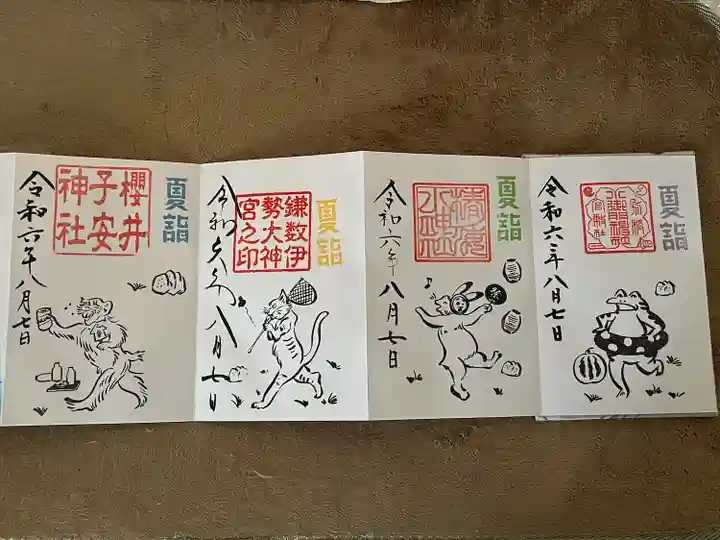 夏詣
櫻井
子安
神社
令和六年八月七日
夏詣
鎌数伊
勢大神
宮之印
令和六年八月七日
夏詣
令和六年八月七日
祭
夏詣
令和六年八月七日